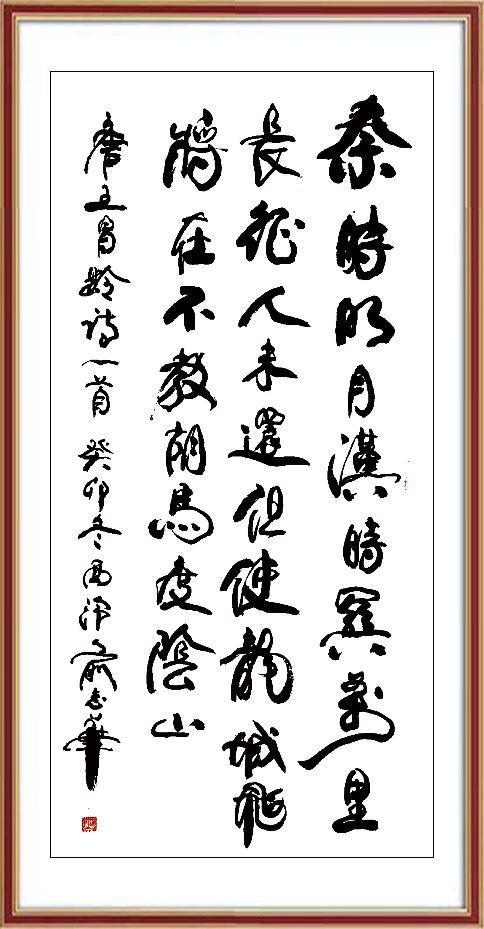 秦時明月漢時關萬里
長征人未還但使龍城飛
將在不教胡馬度陰山
唐王昌齡詩一首 癸卯冬西泠俞志華